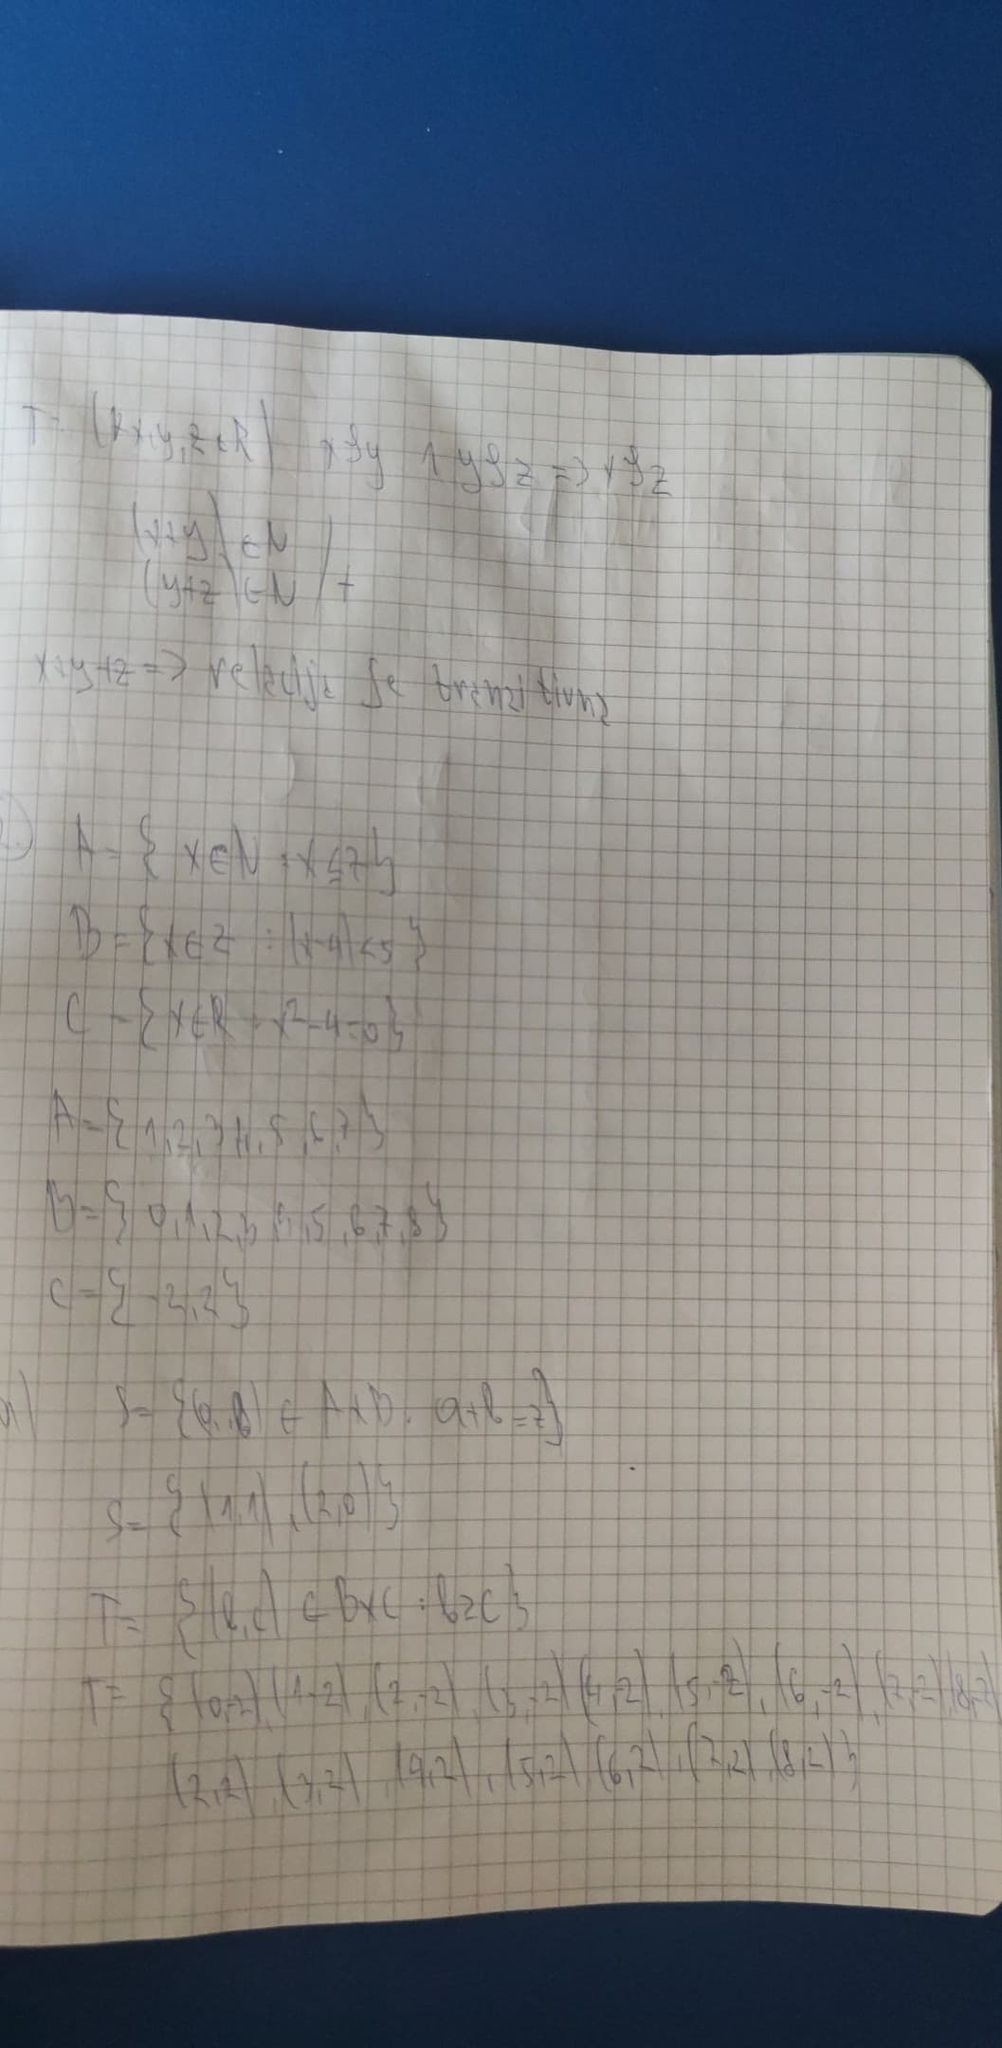 T= (∀x,y,z∈R) xρy ∧ yρz => xρz
(x+y) ∈N
(y+z) ∈N /+
x+y+z => relacija je tranzitivna
A={x∈N : x≤7}
B={x∈Z : |x-4|<5}
C={x∈R : x²-4=0}
A={1,2,3,4,5,6,7}
B={0,1,2,3,4,5,6,7,8}
C={-2,2}
a) S={(a,b) ∈ A×B : a+b=2}
S={(1,1),(2,0)}
T={(b,c) ∈ B×C : b≥c}
T={(0,-2),(1,-2),(2,-2),(3,-2),(4,-2),(5,-2),(6,-2),(7,-2),(8,-2)
(2,2),(3,2),(4,2),(5,2),(6,2),(7,2),(8,2)}